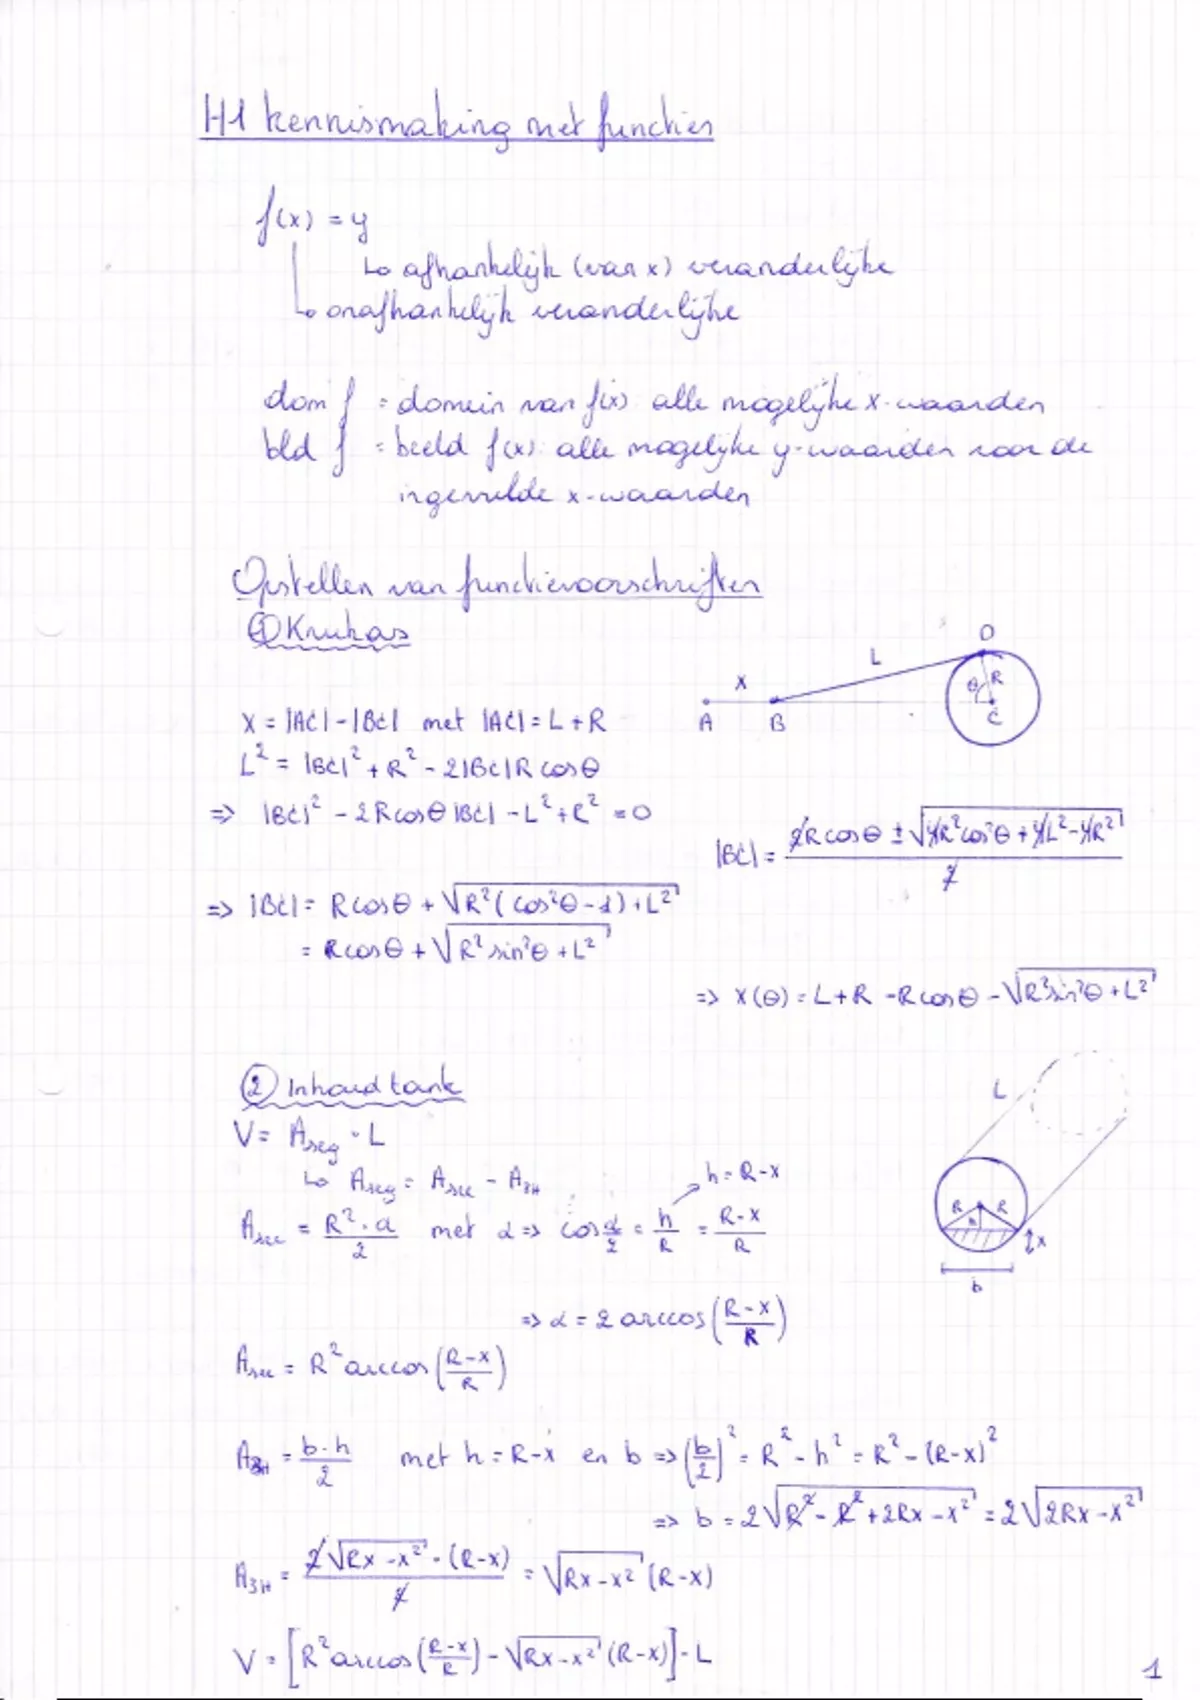 H1 kennismaking met functies
f(x) = y
↳ afhankelijk (van x) veranderlijke
↳ onafhankelijk veranderlijke
dom f = domein van f(x) alle mogelijke x-waarden
bld f = beeld f(x): alle mogelijke y-waarden voor de
ingevulde x-waarden
Opstellen van functievoorschriften
① Krukas
D
L
X
θ
R
A
B
C
X = |AC| - |BC| met |AC| = L + R
L² = |BC|² + R² - 2|BC|R cosθ
=> |BC|² - 2Rcosθ|BC| - L² + R² = 0
|BC| = (2Rcosθ ± √(4R²cos²θ + 4L² - 4R²)) / 2
=> |BC| = Rcosθ + √(R²(cos²θ - 1) + L²)
= Rcosθ + √(R² sin²θ + L²)
=> X(θ) = L + R - Rcosθ - √(R² sin²θ + L²)
② Inhoud tank
L
V = Aseg · L
↳ Aseg = Asec - A3H
h = R - x
Asec = R²·α / 2 met α => cos α/2 = h/R = (R-x)/R
R
R
h
x
b
=> α = 2 arccos((R-x)/R)
Asec = R² arccos((R-x)/R)
A3H = b·h / 2 met h = R - x en b => (b/2)² = R² - h² = R² - (R-x)²
=> b = 2√(R² - R² + 2Rx - x²) = 2√(2Rx - x²)
A3H = 2√(Rx - x²) · (R-x) / 2 = √(Rx - x²) (R-x)
V = [R² arccos((R-x)/R) - √(Rx - x²) (R-x)] · L
1